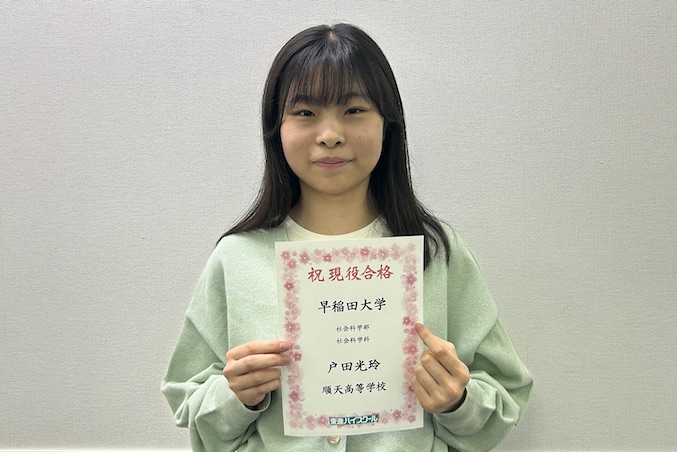 祝現役合格
早稲田大学
社会科学部
社会科学科
戸田光玲
順天高等学校
東進ハイスクール